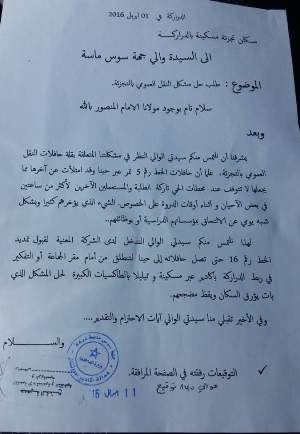 للدراركة في 01 ابريل 2016
سكان تجزئة مسكينة بالدراركة
الى السيدة والي جهة سوس ماسة
الموضوع : طلب حل مشكل النقل العمومي بالتجزئة.
سلام تام بوجود مولانا الامام المنصور بالله
وبعد
يشرفنا أن نلتمس منكم سيدتي الوالي النظر في مشكلتنا المتعلقة بقلة حافلات النقل
العمومي بالتجزئة، علما أن حافلات الخط رقم 5 تمر عبر حينا وقد امتلأت عن آخرها مما
يجعلها لا تتوقف عند محطات الحي تاركة الطلبة والمستعملين الآخرين لأكثر من ساعتين
في بعض الأحيان و أثناء أوقات الذروة على الخصوص، الشيء الذي يؤخرهم كثيرا وبشكل
شبه يومي عن الالتحاق بمؤسساتهم الدراسية أو بوظائفهم..
لهذا نلتمس منكم سيدتي الوالي التدخل لدى الشركة المعنية لقبول تمديد
الخط رقم 16 حتى تصل حافلاته إلى حينا لتنطلق من أمام مقر الجماعة أو التفكير
في ربط الدراركة بأكادير عبر مسكينة و تيليلا بالطاكسيات الكبيرة لحل المشكل الذي
بات يؤرق السكان ويقظ مضجعهم.
وفي الأخير تقبلي منا سيدتي الوالي آيات الاحترام والتقدير....
والســـــلام
التوقيعات رفقته في الصفحة المرافقة.